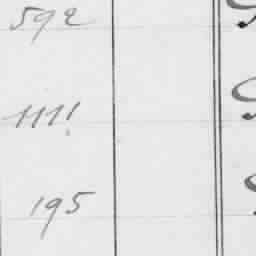 592
1111
195